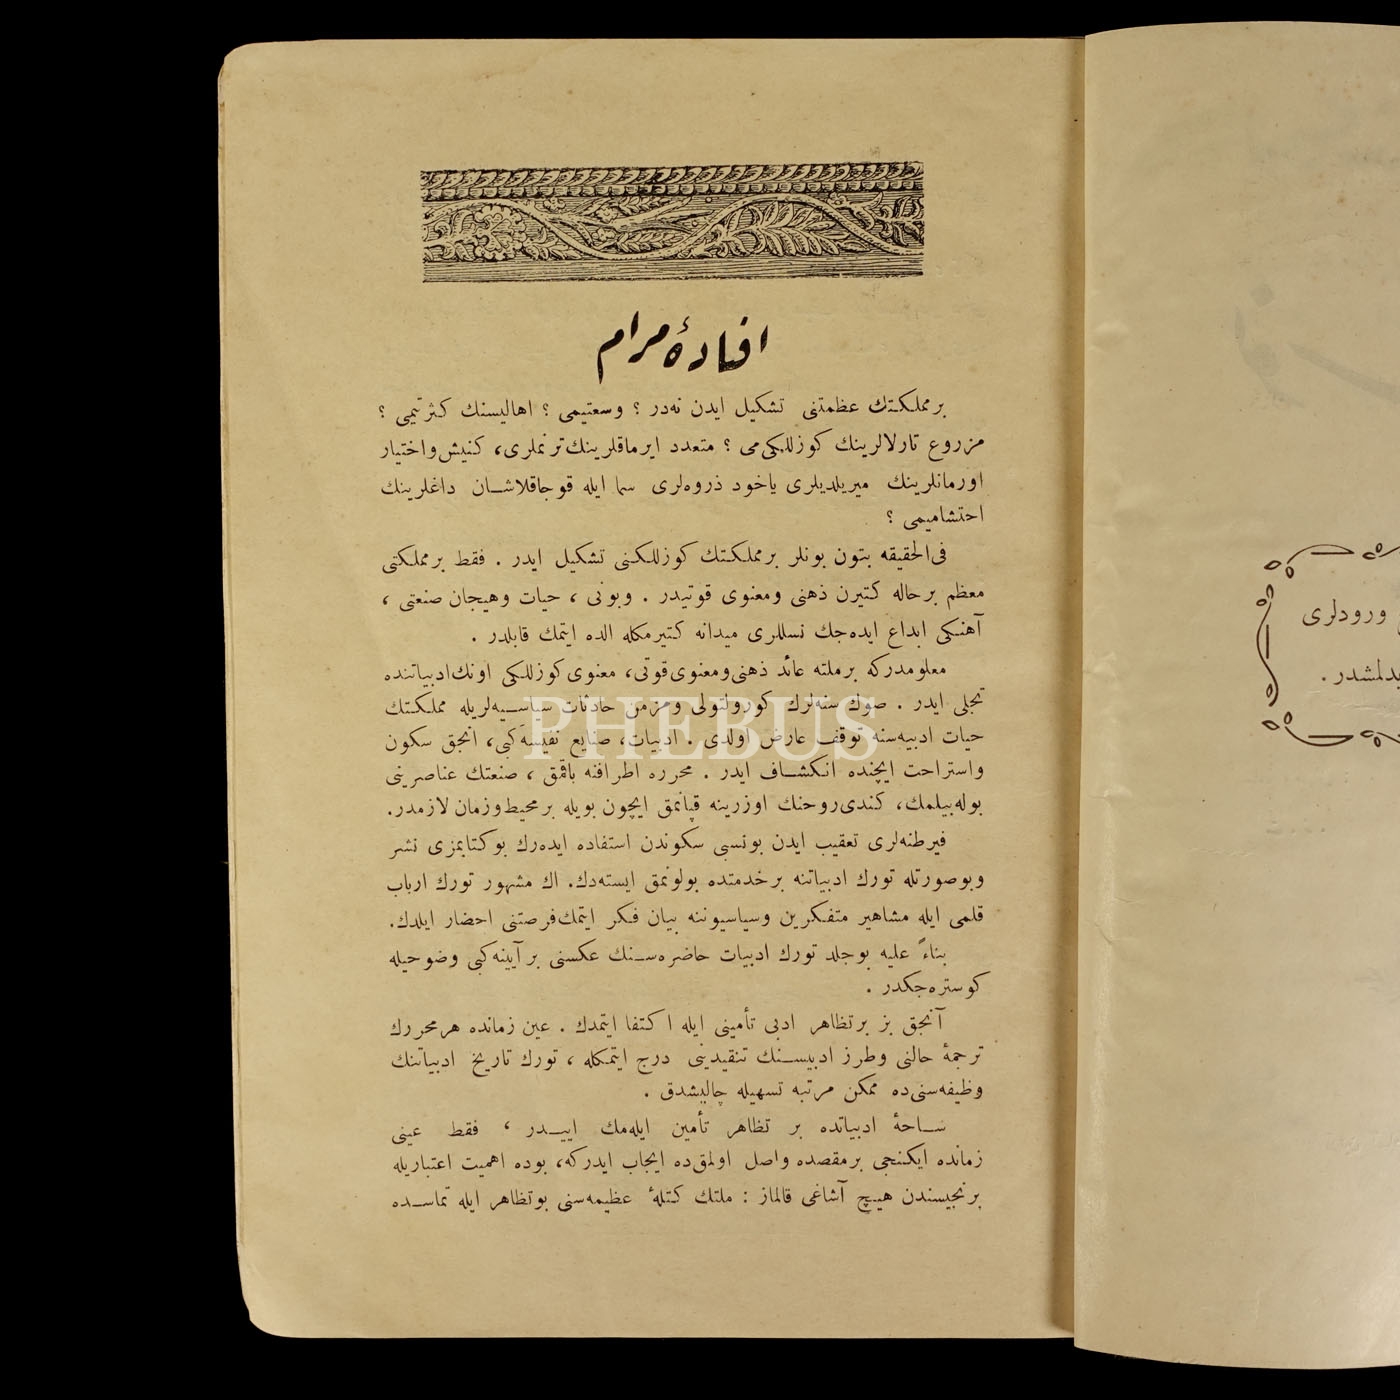 افادۀ مرام
بر مملكتك عظمتنی تشكیل ایدن نه‌در ؟ وسعتیمی ؟ اهالیسنك كثرتیمی ؟
مزروع تارلالرینك كوزللكی‌می ؟ متعدد ایرماقلرینك ترنملری، كنیش و اختیار
اورمانلرینك میریلدیلری یاخود ذروه‌لری سما ایله قوجاقلاشان داغلرینك
احتشامیمی ؟
فی‌الحقیقه بتون بونلر بر مملكتك كوزللكنی تشكیل ایدر . فقط بر مملكتی
معظم بر حاله كتیرن ذهنی ومعنوی قوتیدر . وبونی ، حیات وهیجان صنعتی ،
آهنكی ابداع ایده‌جك نسللری میدانه كتیرمكله الده ایتمك قابلدر .
معلومدركه بر ملته عائد ذهنی ومعنوی قوتی، معنوی كوزللكی اونك ادبیاتنده
تجلی ایدر . صوك سنه‌لرك كورولتولی ومزمن حادثات سیاسیه‌لریله مملكتك
حیات ادبیه‌سنه توقف عارض اولدی . ادبیات، صنایع نفیسه كبی، انجق سكون
واستراحت ایچنده انكشاف ایدر . محرره اطرافنه باقمق ، صنعتك عناصرینی
بوله‌بیلمك، كندی روحنك اوزرینه قپانمق ایچون بویله بر محیط وزمان لازمدر.
فیرطنه‌لری تعقیب ایدن بو نسبی سكوندن استفاده ایده‌رك بو كتابمزی نشر
وبوصورتله تورك ادبیاتنه بر خدمتده بولونمق ایسته‌دك. اك مشهور تورك ارباب
قلمی ایله مشاهیر متفكرین وسیاسیوننه بیان فكر ایتمك فرصتنی احضار ایلدك.
بناءً علیه بو جلد تورك ادبیات حاضره‌سنك عكسنی بر آیینه كبی وضوحیله
كوستره‌جكدر .
آنجق بز بر تظاهر ادبی تأمینی ایله اكتفا ایتمدك . عین زمانده هر محررك
ترجمۀ حالنی وطرز ادبیسنك تنقیدینی درج ایتمكله ، تورك تاریخ ادبیاتنك
وظیفه‌سنی‌ده ممكن مرتبه تسهیله چالیشدق .
ساحۀ ادبیاتده بر تظاهر تأمین ایله‌مك اییدر ، فقط عینی
زمانده ایكنجی بر مقصده واصل اولمق‌ده ایجاب ایدركه، بوده اهمیت اعتباریله
برنجیسندن هیچ آشاغی قالماز : ملتك كتلۀ عظیمه‌سنی بو تظاهر ایله تماسده
PHEBUS
ورودلری
یدلمشدر .